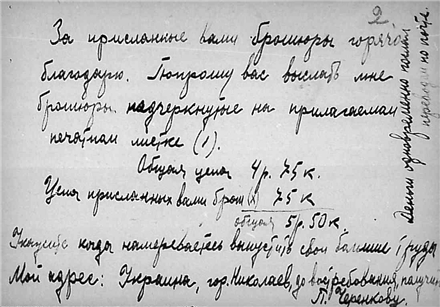 2
За присланные вами брошюры горячо
благодарю. Попрошу вас выслать мне
брошюры подчеркнутые на прилагаемом
печатном листке (1).
Общая цена 4 р. 75 к.
Цена присланных вами брош(х) 75 к
общая 5 р. 50 к.
когда намереваетесь выпустить свои труды
Мой адрес: Украина, гор. Николаев, до востребования, получит
П. Черенкову.
Деньги одновременно
переводом по почте